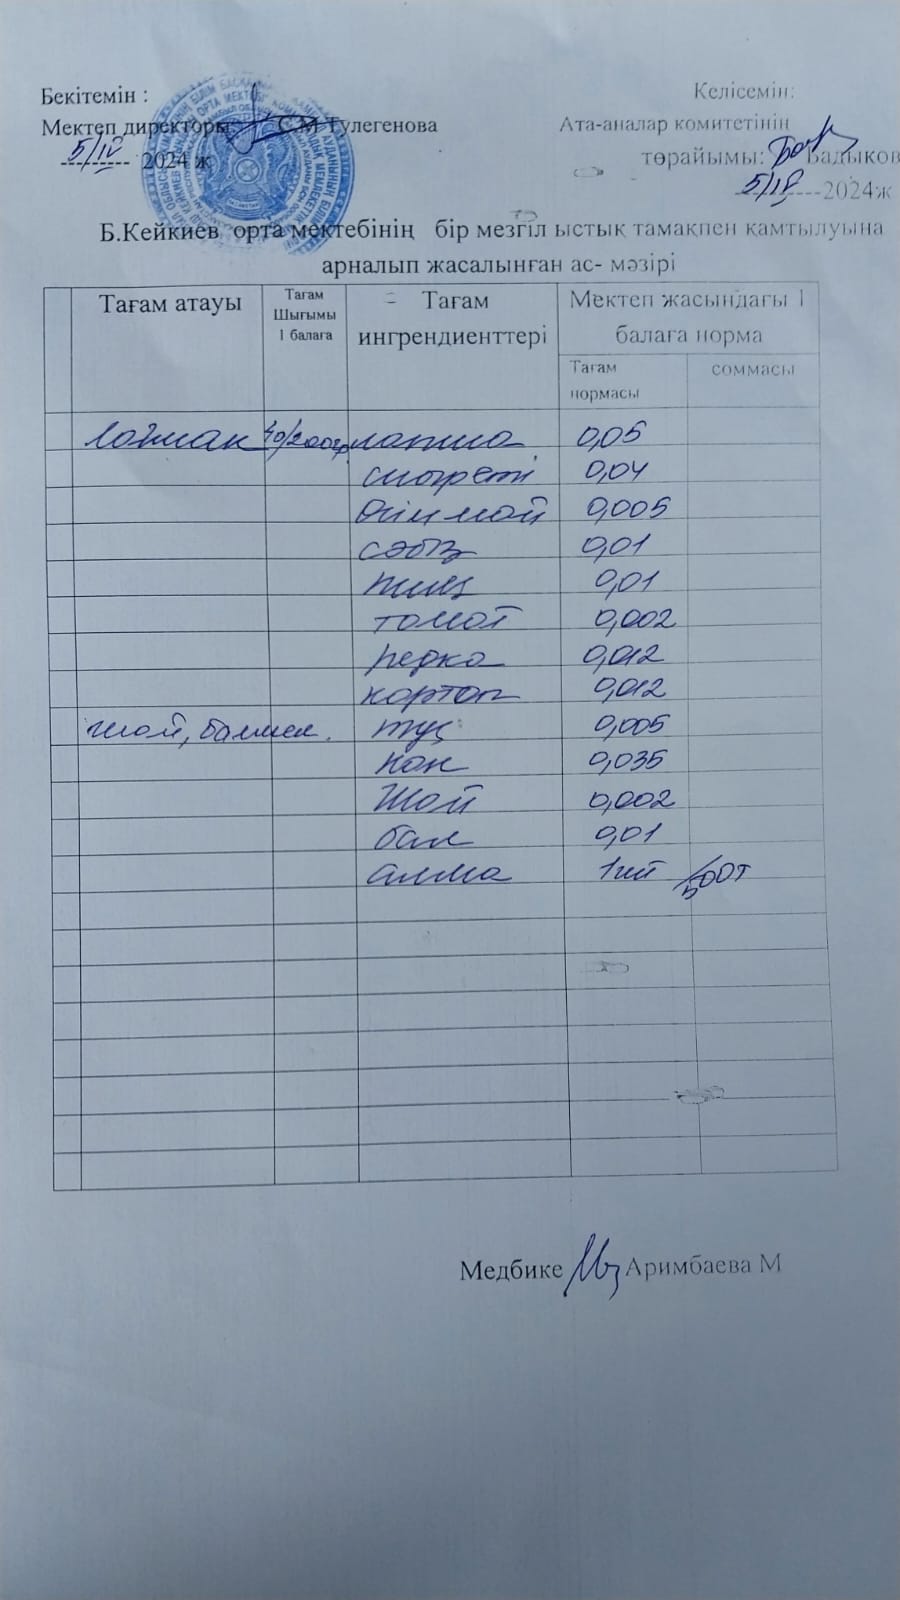 Бекітемін :
Келісемін:
Мектеп директоры С.М Тулегенова
Ата-аналар комитетінің
5/IV 2024 ж
төрайымы: Бадыков
2024ж
Б.Кейкиев орта мектебінің бір мезгіл ыстық тамақпен қамтылуына
арналып жасалынған ас- мәзірі
Тағам атауы
Тағам Шығымы 1 балаға
Тағам ингрендиенттері
Мектеп жасындағы 1 балаға норма
Тағам нормасы
соммасы
лағман 40/200гр лапша 0,05
сиыр еті 0,04
өсім май 0,005
сәбіз 0,01
пияз 0,01
томат 0,002
редка 0,012
картоп 0,012
шай, балмен. тұз 0,005
нан 0,035
Шай 0,002
бал 0,01
алма 1шт
Медбике Аримбаева М